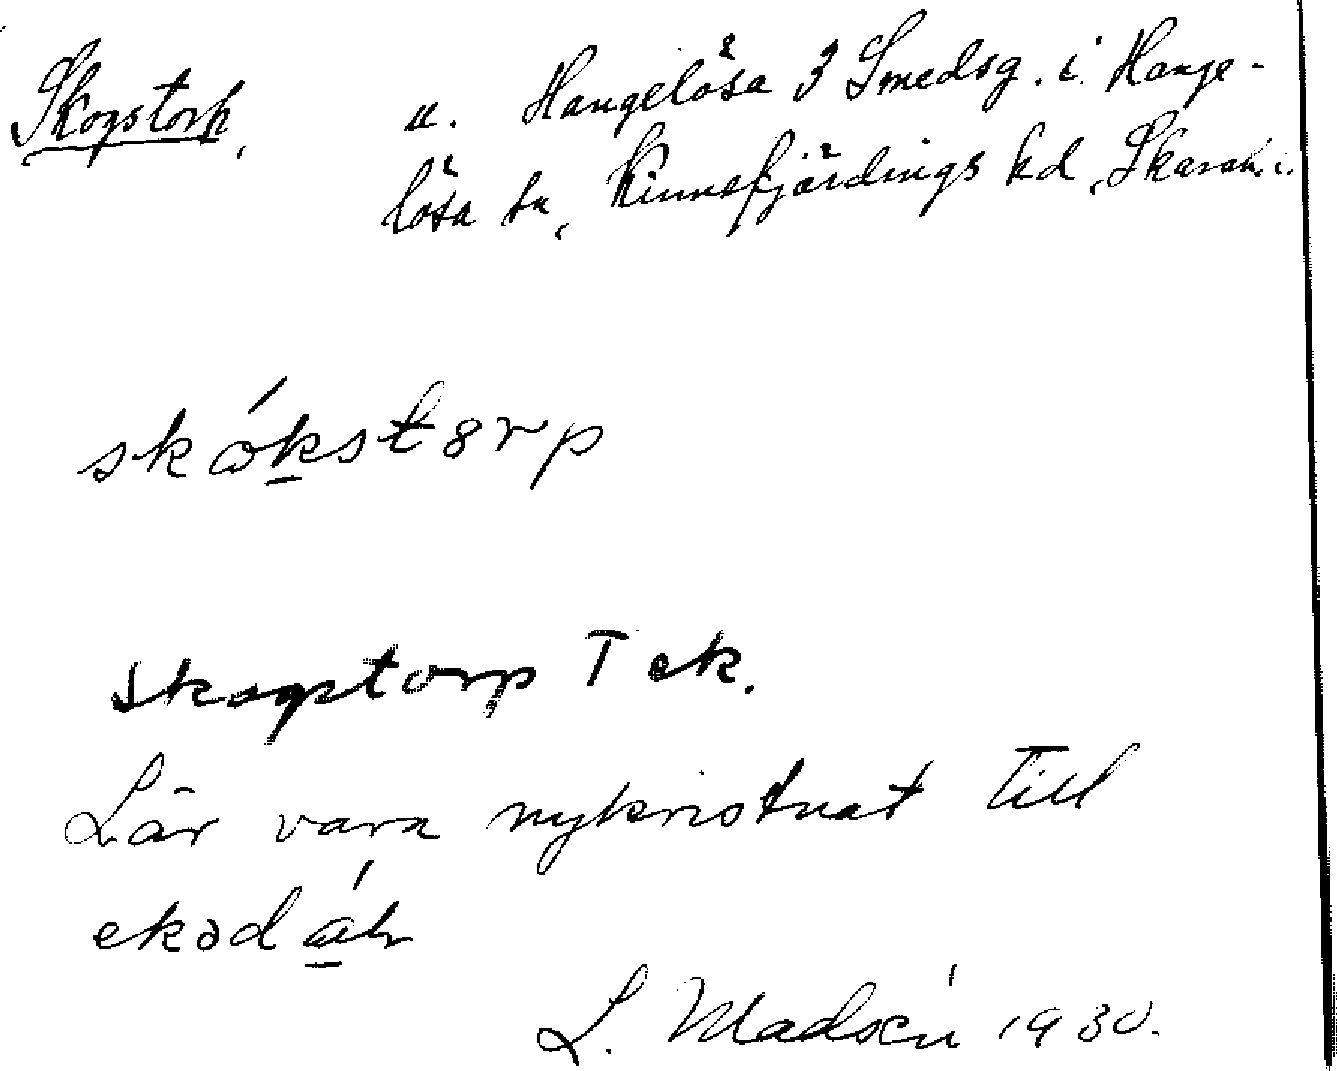 Skogstorp, u. Hangelösa 3 Smedsg. i Hange-
lösa sn, Kinnefjärdings hd, Skarab. l.
skókstorp
Skogstorp T ek.
Lär vara nykristnat till
ekədáln
L. Madsén 1930.